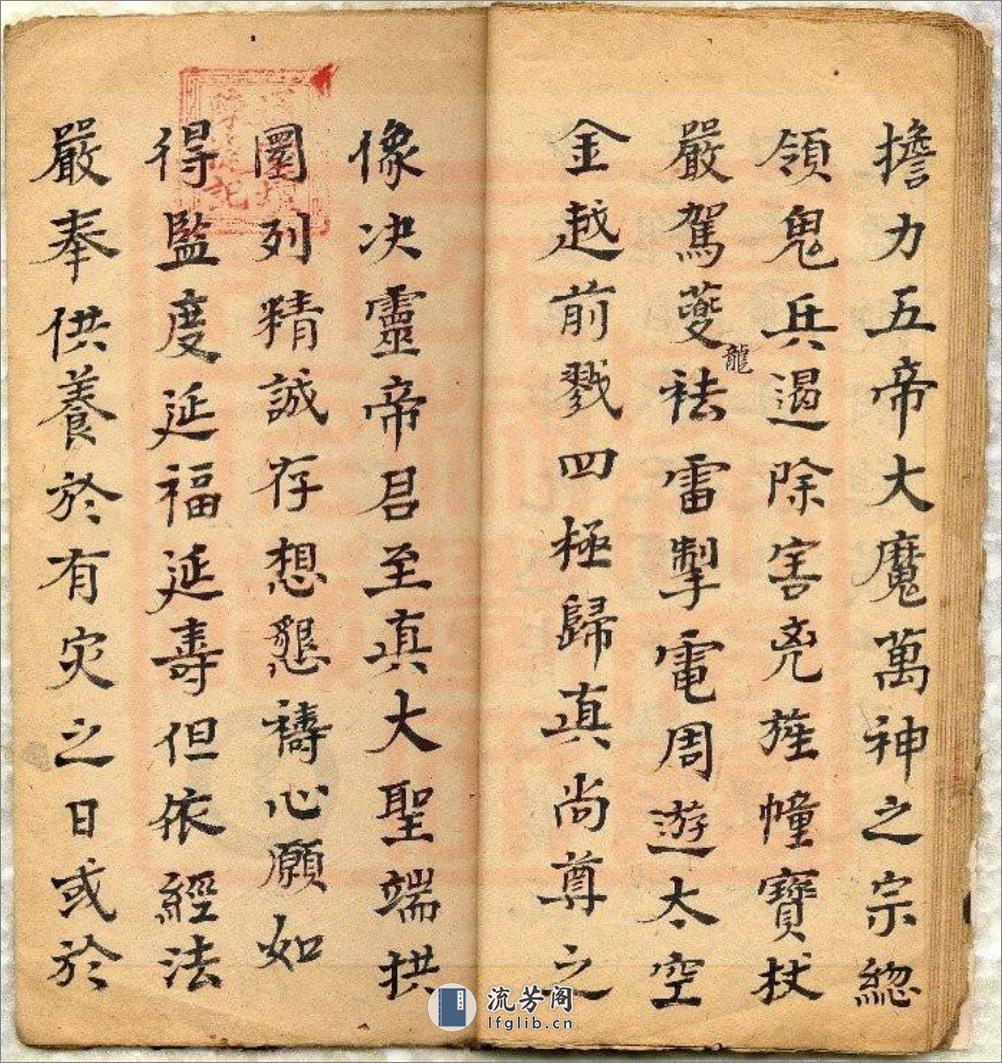 擔力五帝大魔萬神之宗緫
領鬼兵遏除害㐫旌幢寶杖
嚴駕夔祛雷掣電周遊太空
龍
金越前戮四極歸真尚尊之
像决靈帝君至真大聖端拱
圍列精誠存想懇禱心願如
得監度延福延壽但依經法
嚴奉供養於有灾之日或於
流芳阁
lfglib.cn